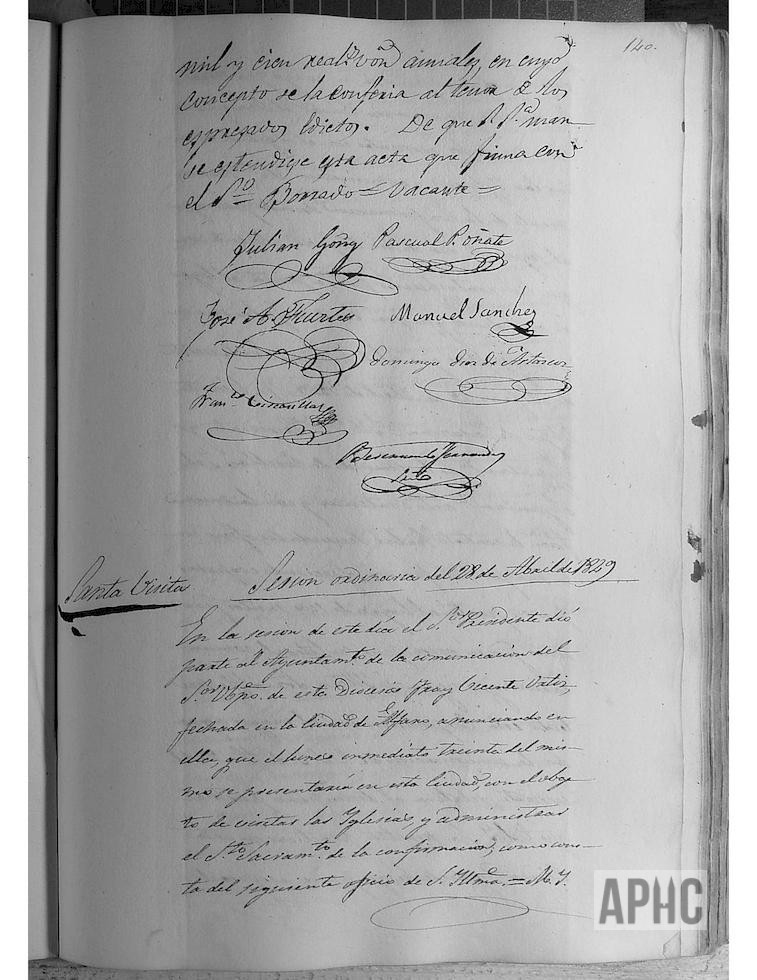 140.
mil y cien real.s von anuales, en cuyo
concepto se la conferia al tenor de los
espresados Edictos. De que S. S.a man
se estendiese esta acta que firma con
el S.o Borrado = Vacante =
Julian Goñy Pascual P. Oñate
José A. Fuertes Manuel Sanchez
Domingo Diaz de
Fran.co
Fernandez
Srio
Santa Visita
Sesion ordinaria del 28 de Abril de 1829
En la sesion de este dia el S.or Presidente dió
parte al Ayuntam.to de la comunicacion del
S.or Obpo. de esta Diocesis Fray Vicente Ortiz,
fechada en la Ciudad de Alfaro, anunciando en
ella, que el lunes inmediato treinta del mis-
mo se presentaria en esta Ciudad, con el obge
to de visitar las Yglesias, y administrar
el S.to Sacram.to de la confirmacion, como cons-
ta del siguiente oficio de S. Ylma. = M. Y.
APHC